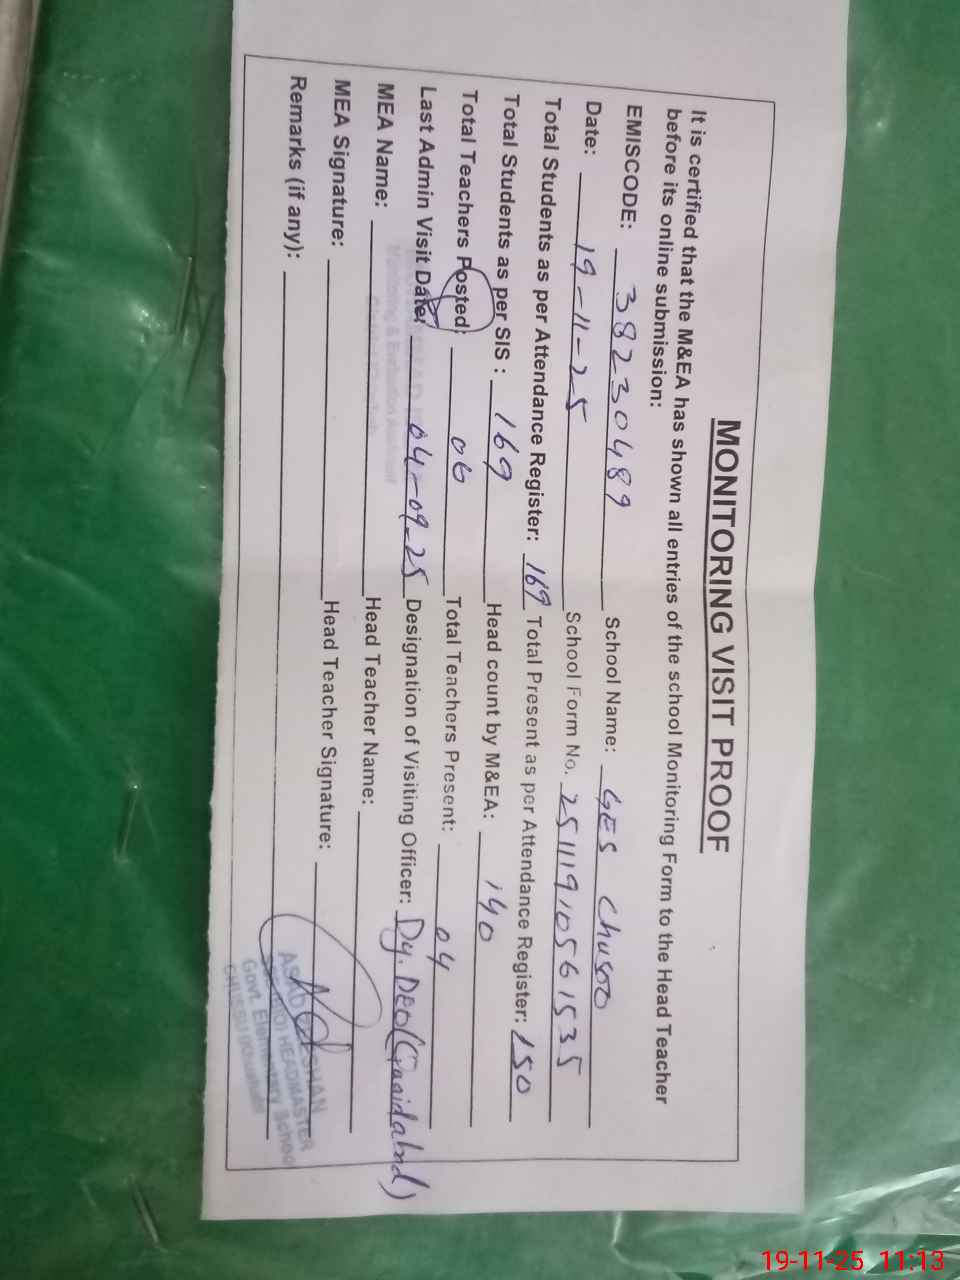 MONITORING VISIT PROOF
It is certified that the M&EA has shown all entries of the school Monitoring Form to the Head Teacher
before its online submission:
EMISCODE: 38230489 School Name: GES Chusso
Date: 19-11-25 School Form No. 25111910561535
Total Students as per Attendance Register: 169 Total Present as per Attendance Register: 150
Total Students as per SIS : 169 Head count by M&EA: 140
Total Teachers Posted: 06 Total Teachers Present: 04
Last Admin Visit Date: 04-09-25 Designation of Visiting Officer: Dy. DEO
MEA Name: Head Teacher Name:
Monitoring & Evaluation Assistant
MEA Signature: Head Teacher Signature:
Remarks (if any):
ASAD
HEADMASTER
Govt. Elementary School
19-11-25 11:13